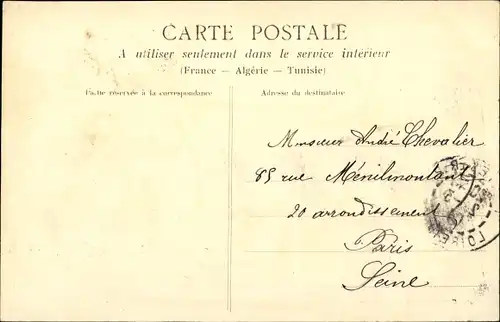 CARTE POSTALE
A utiliser seulement dans le service intérieur
(France — Algérie — Tunisie)
Partie réservée à la correspondance
Adresse du destinataire
Monsieur André Chevalier
85 rue Ménilmontant
20 arrondissement
Paris
Seine